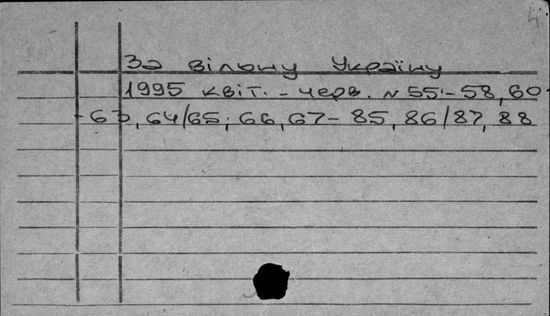 4.
За вільну Україну
1995 квіт. - черв. N 55-58, 60-
-63, 64/65; 66, 67-85, 86/87, 88